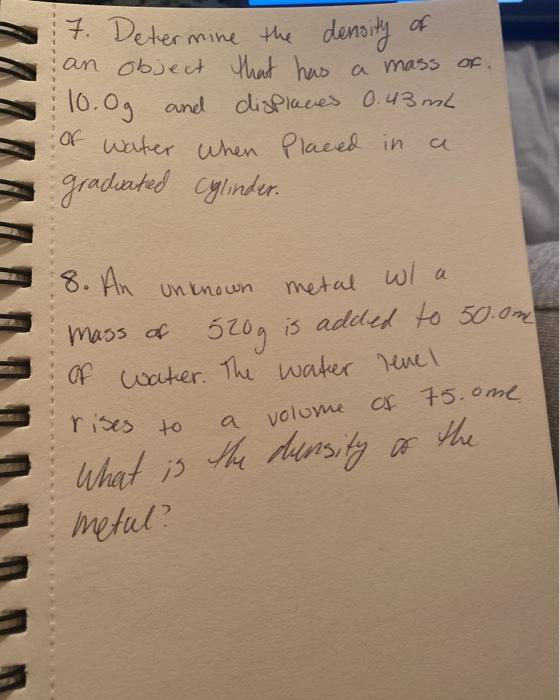 7. Determine the density of
an object that has a mass of.
10.0g and displaces 0.43mL
of water when Placed in a
graduated cylinder.
8. An unknown metal w/ a
mass of 520g is added to 50.0mL
of water. The water level
rises to a volume of 75.0mL.
What is the density of the
metal?